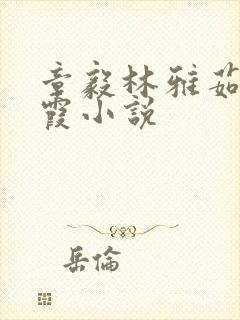 章毅林雅茹
霞小説
岳倫